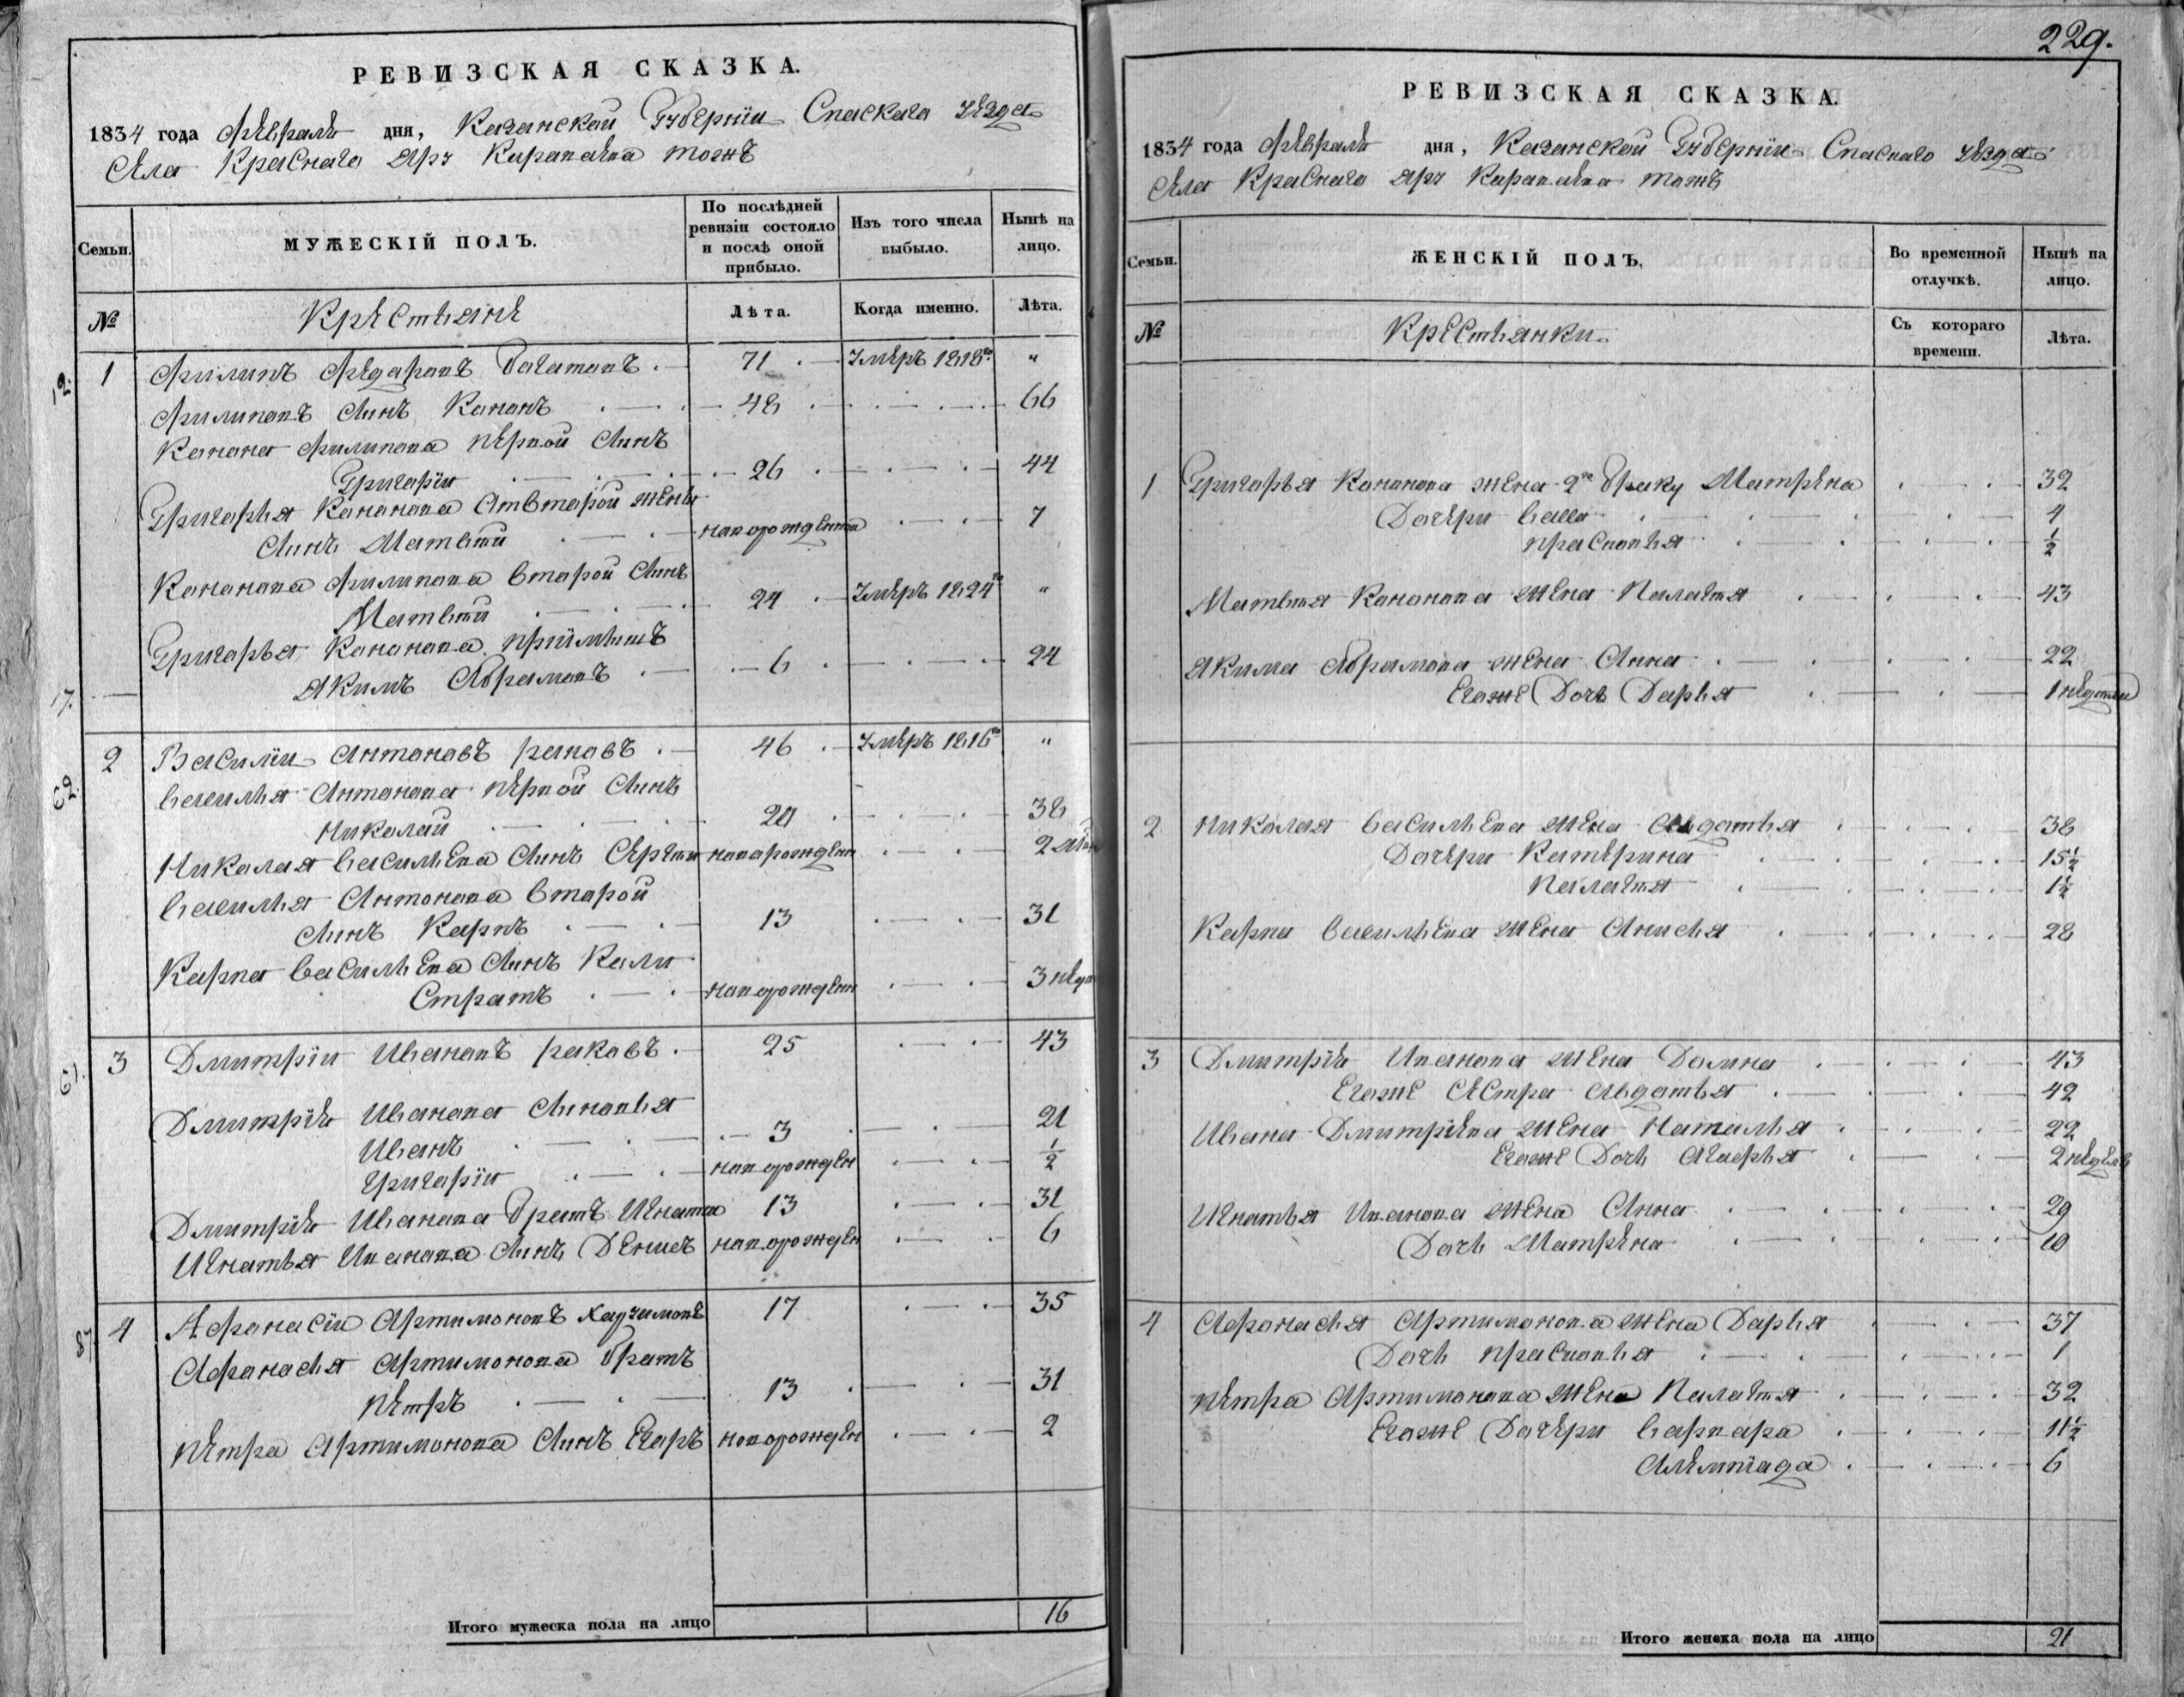 РЕВИЗСКАЯ СКАЗКА.
1834 года февраля дня, Казанской Губернiи Спаскаго уезда
Села Краснаго Яру тожъ
Семьи.
МУЖЕСКIЙ ПОЛЪ.
По послѣдней ревизiи состояло и послѣ оной прибыло.
Изъ того числа выбыло.
Нынѣ на лицо.
№
Крестьяне
Лѣта.
Когда именно.
Лѣта.
12.
1 Филипъ Федоровъ 71 умеръ 1818го "
Филиповъ сынъ Кононъ 48 66
Конона Филипова первой сынъ
Григорiй 26 44
Григорья Кононова отвторой жены
сынъ Матвей новорожденна 7
Кононова Филипова второй сынъ
Матвей 24 умеръ 1824го "
Григорья Кононова прiймышъ
Якимъ Абрамовъ 6 24
17.
62.
2 Василiи Антоновъ раковъ 46 умеръ 1816го "
василья Антонова первой сынъ
николай 20 38
Николая васильева сынъ Сергеи новорожден 2
василья Антонова второй
сынъ Карпъ 13 31
Карпа васильева сынъ Кали
стратъ новорожден 3 недел
61.
3 Дмитрiи Ивановъ раковъ 25 43
Дмитрiя Иванова сыновья
Иванъ 3 21
григорiи новорожден 1/2
Дмитрiя Иванова братъ Игнатеи 13 31
Игнатья Иванова сынъ Денисъ новорожден 6
87.
4 Афонасiи Артимоновъ 17 35
Афонасья Артимонова братъ
петръ 13 31
петра Артимонова сынъ Егоръ новорожден 2
Итого мужеска пола на лицо 16
229.
РЕВИЗСКАЯ СКАЗКА.
1834 года февраля дня, Казанской Губернiи Спаскаго уезда
села Краснаго Яру тожъ
Семьи.
ЖЕНСКIЙ ПОЛЪ.
Во временной отлучкѣ.
Нынѣ на лицо.
№
Крестьянки
Съ котораго времени.
Лѣта.
1 Григорья Кононова жена 2го браку Матрена 32
Дочери васса 4
прасковья 1/2
Матвея Кононова жена Палагея 43
Якима Абрамова жена Анна 22
Егоже Дочь Дарья 1 недели
2 николая васильева жена Авдотья 38
Дочери Катерина 15 1/2
палагея 1 1/2
Карпа васильева жена Анисья 28
3 Дмитрiя Иванова жена Домна 43
Егоже сестра Авдотья 42
Ивана Дмитрiева жена Наталья 22
Егоже Дочь Агафья 2 недели
Игнатья Иванова жена Анна 29
Дочь Матрена 10
4 Афонасья Артимонова жена Дарья 37
Дочь прасковья 1
петра Артимонова жена Палагея 32
Егоже Дочери варвара 11 1/2
Алемпiада 6
Итого женска пола на лицо 21